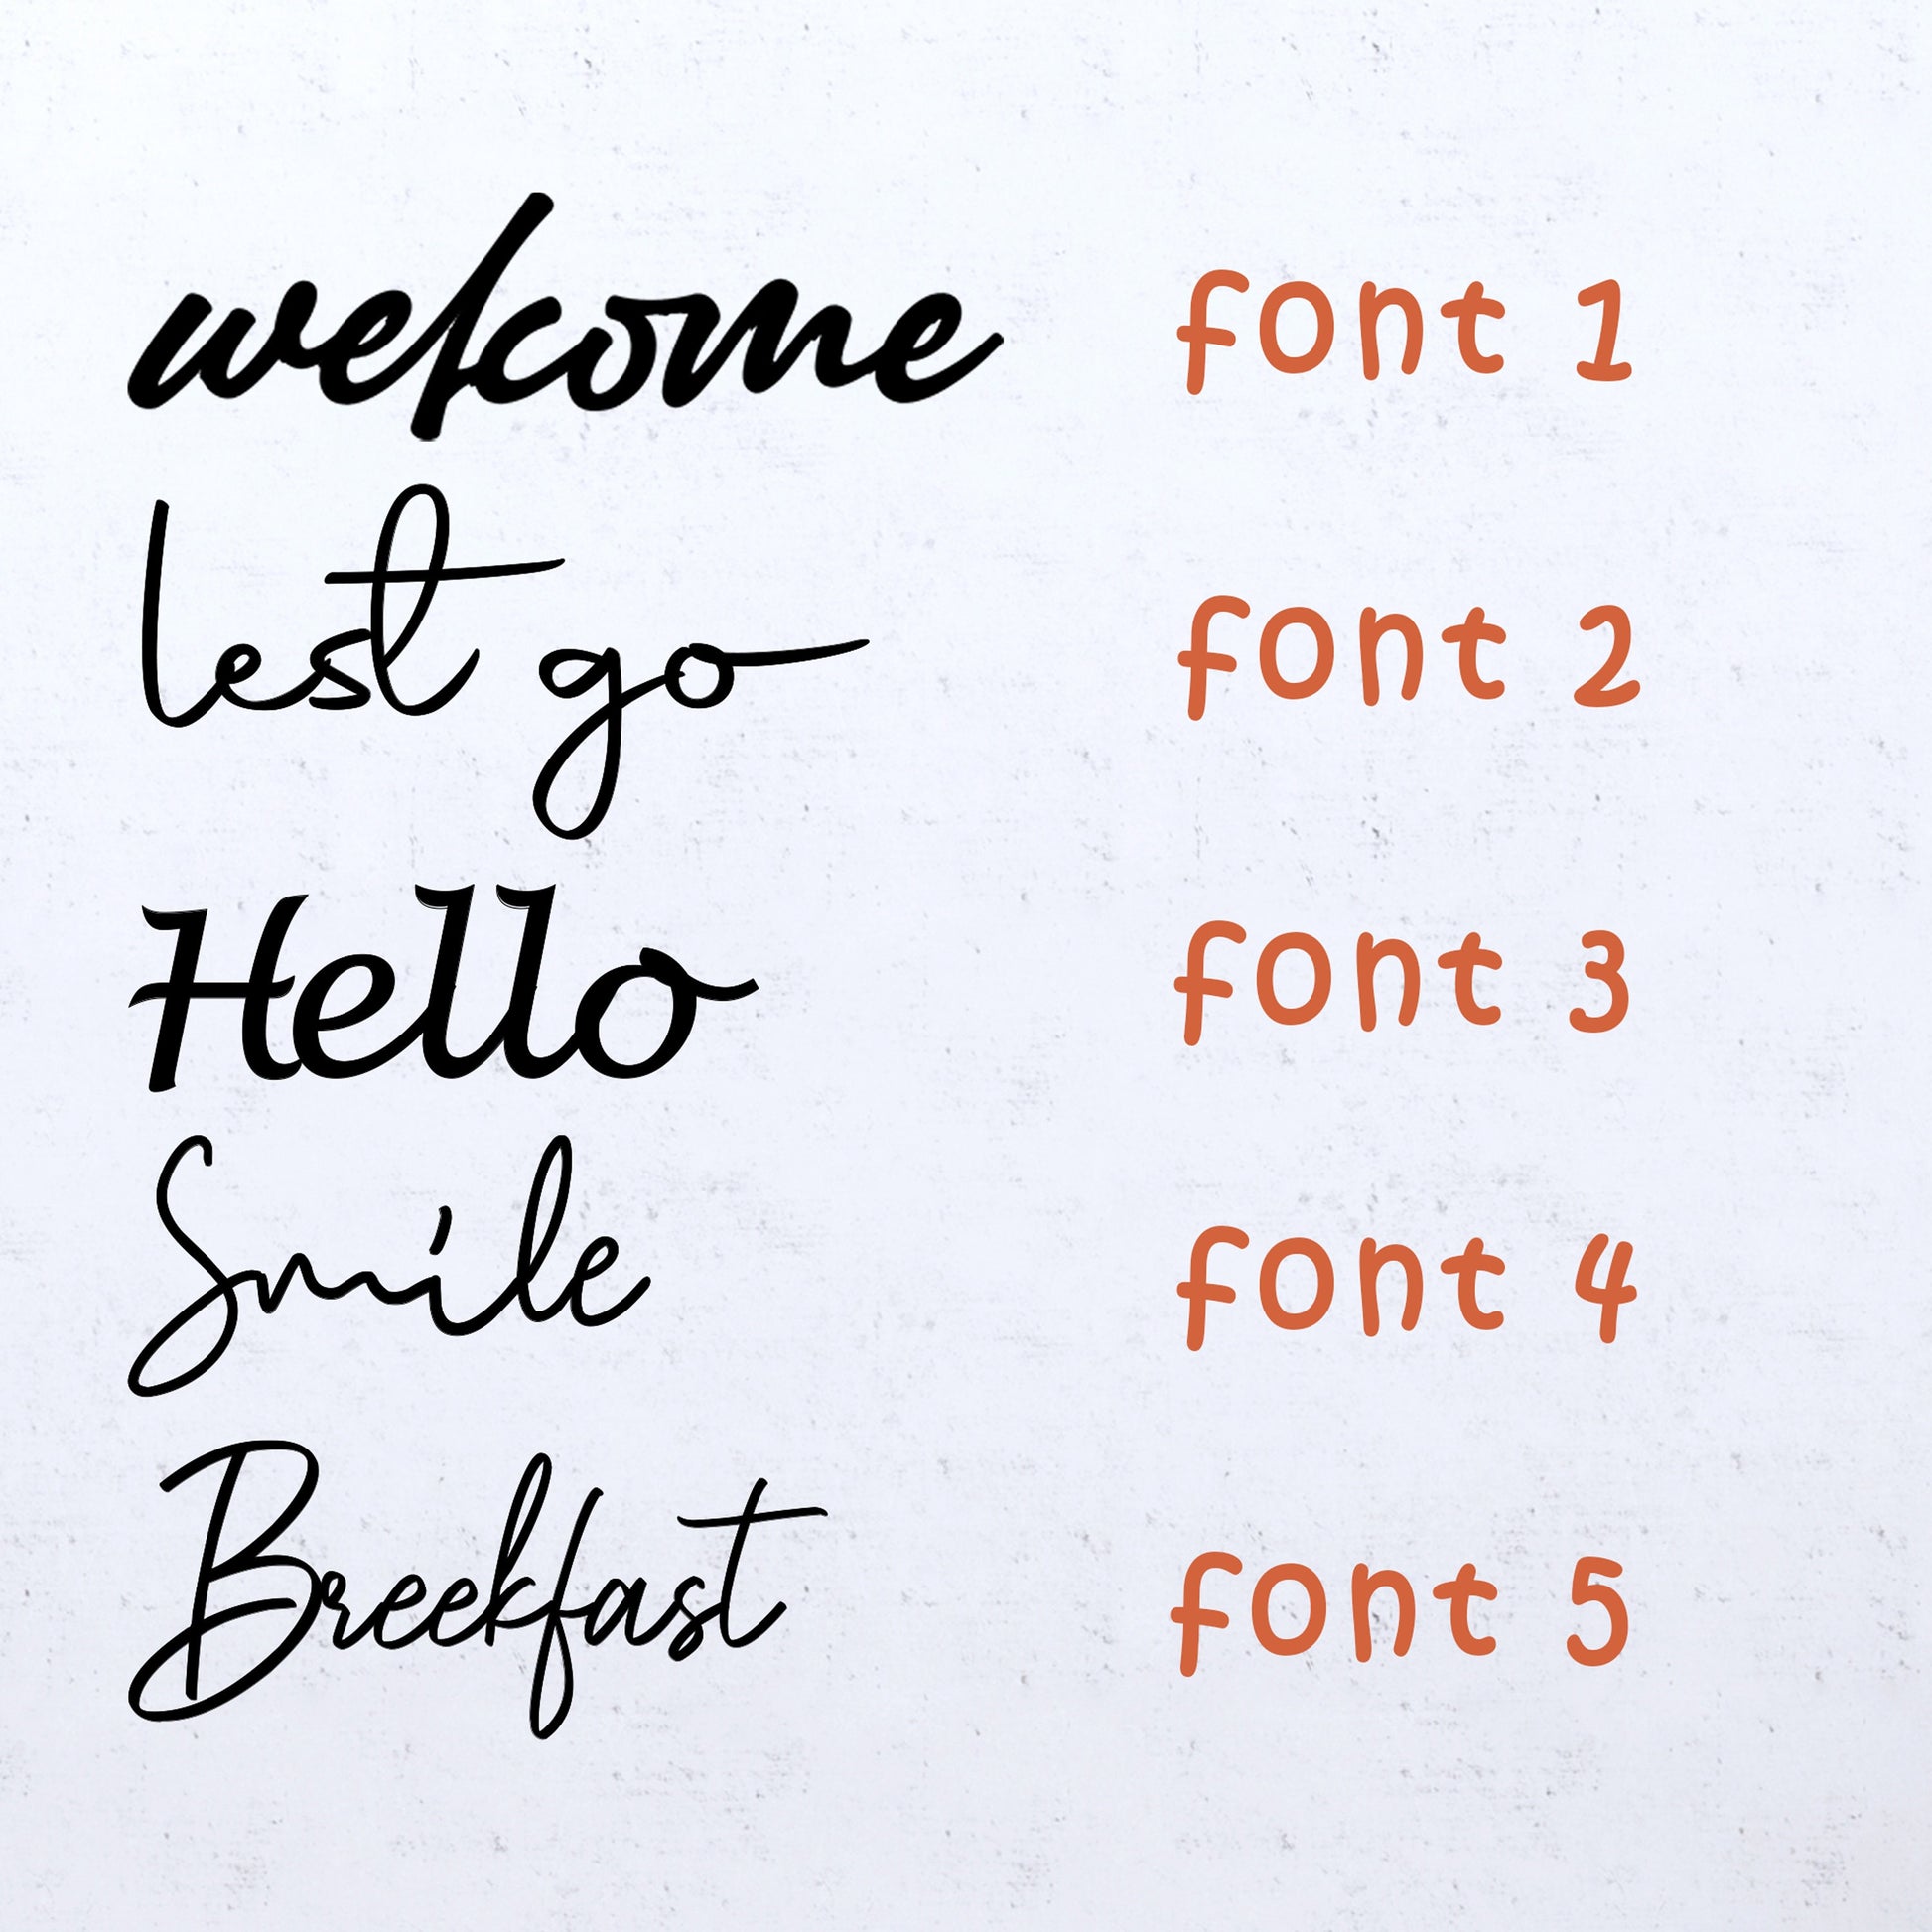 welcome font 1
lest go font 2
Hello font 3
Smile font 4
Breekfast font 5